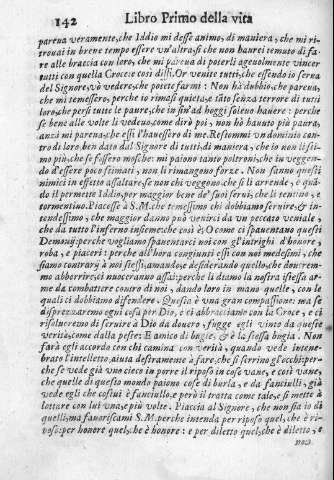 142 Libro Primo della vita
parena veramente, che Iddio mi desse animo, di maniera, che mi ri-
trouai in breue tempo essere vn'altra, sì che non haurei temuto di fa-
re alle braccia con loro, che mi pareua di poterli ageuolmente vincer
tutti con quella Croce: e così dissi. Or venite tutti, che essendo io serua
del Signore, vò vedere, che potete farmi: Non hà dubbio, che pareua,
che mi temessero, perche io rimasi quieta, e tāto senza terrore di tutti
loro, che persi tutte le paure, che in sin'ad hoggi soleuo hauere: perche
se bene alle volte li vedeuo, come dirò poi, non hò hauuto più paura,
anzi mi parena, che essi l'hauessero di me. Restommi vn dominio con-
tro di loro ben dato dal Signore di tutti, di maniera, che io non li sti-
mo più, che se fossero mosche: mi paiono tanto poltroni, che in veggen-
do d'essere poco stimati, non li rimangono forze. Non sanno questi
nimici in effetto assaltare, se non chi veggono che se li arrende, ò quā-
do il permette Iddio, per maggior bene de' suoi serui, che li tentino, e
tormentino. Piacesse à S.M. che temessimo chi dobbiamo seruire, & in-
tendessimo, che maggior danno può venirci da vn peccato veniale,
che da tutto l'inferno insieme: che così è. O come ci spauentano questi
Demonij: perche vogliamo spauentarci noi con gl'intrighi d'honore,
roba, e piaceri: perche all'hora congiunti essi con noi medesimi, che
siamo contrarij à noi stessi, amando, e desiderando quello, che douerem-
mo abborrire, ci nuoceranno assai: perche li diamo la nostra istessa ar-
me da combattere contro di noi, dando loro in mano quelle, con le
quali ci dobbiamo difendere. Questa è vna gran compassione: ma se
disprezzaremo ogni cosa per Dio, e ci abbracciamo con la Croce, e ci
risoluremo di seruire à Dio da douero, fugge egli vinto da queste
verità, come dalla peste: È amico di bugie, & è la stessa bugia. Non
farà egli accordo con chi camina con verità, quando vede intene-
brato l'intelletto, aiuta destramente à fare, che si serrino gl'occhi: per-
che se vede già vno cieco in porre il riposo in cose vane, e così vane,
che quelle di questo mondo paiono cose di burla, e da fanciulli, già
vede egli che costui è fanciullo, e però il tratta come tale, e si mette à
lottare con lui vna, e più volte. Piaccia al Signore, che non sia io di
quelli, ma fauoriscami S.M. perche intenda per riposo quel, che è ri-
poso: per honore quel, che è honore: e per diletto quel, che è diletto, e
non